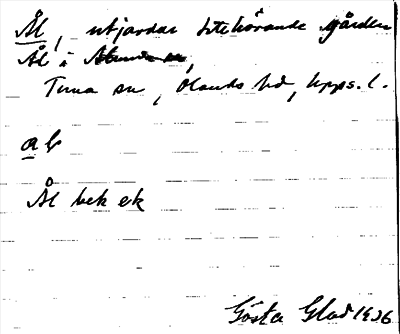 Ål, utjordar tillhörande gården
Ål i
Tuna sn, Olands hd, Upps. l.
al
Ål bek ek
Gösta Glad 1936